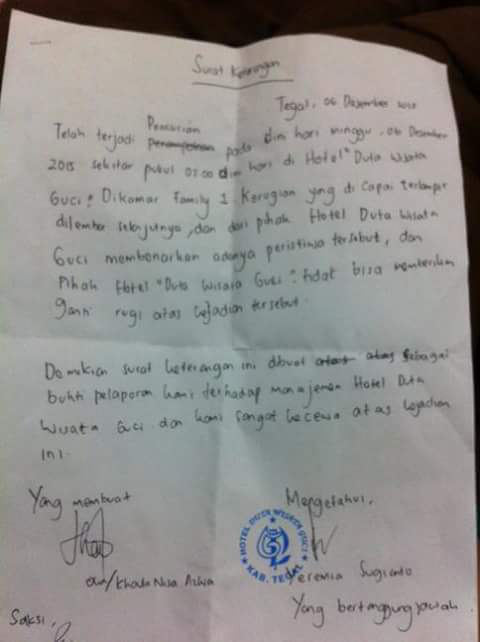 Surat Keterangan
Tegal, 06 Desember 2015
Pencurian
Telah terjadi Perampokan pada dini hari minggu, 06 Desember
2015 sekitar pukul 03:00 dini hari di Hotel "Duta Wisata
Guci". Dikamar Family 1. Kerugian yang di capai terlampir
dilembar selanjutnya, dan dari pihak Hotel Duta Wisata
Guci membenarkan adanya peristiwa tersebut, dan
Pihak Hotel "Duta Wisata Guci". tidak bisa memberikan
ganti rugi atas kejadian tersebut.
Demikian surat keterangan ini dibuat atas sebagai
bukti pelaporan kami terhadap manajemen Hotel Duta
Wisata Guci. dan kami sangat kecewa atas kejadian
ini.
Yang membuat
Mengetahui,
HOTEL DUTA WISATA GUCI
KAB. TEGAL
Khoula Nisa
Yeremia Sugianto
Yang bertanggung jawab.
Saksi,